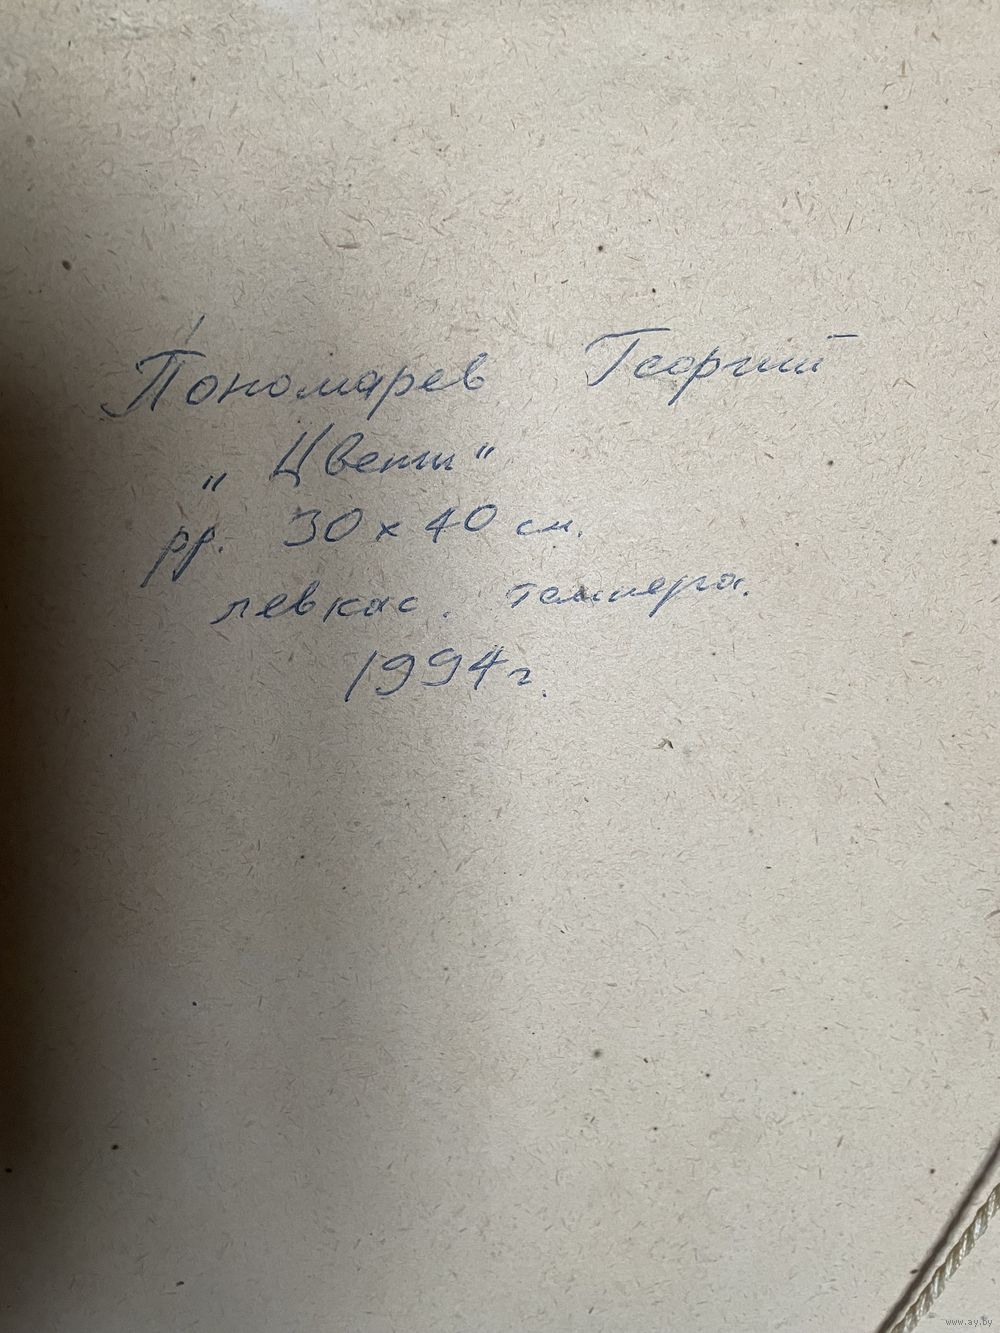 Пономарев Георгий
„Цветы"
рр. 30 х 40 см.
левкас. темпера.
1994 г.
www.ay.by